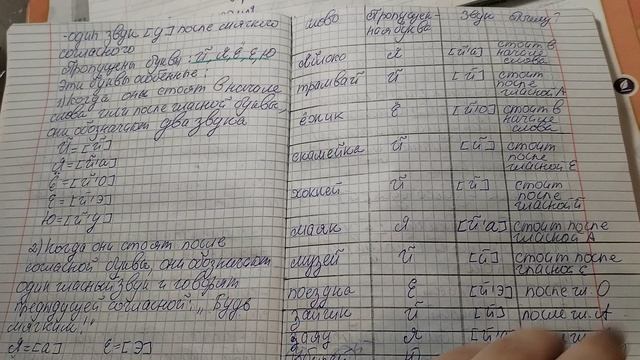 -один звук [у] после мягкого
согласного
Пропущены буквы: Й, Я, Ё, Е, Ю
Эти буквы особенные:
1) Когда они стоят в начале
слова или после гласной буквы,
они обозначают два звука
Й = [Й]
Я = [Й'а]
Ё = [Й'О]
Е = [Й'Э]
Ю = [Й'У]
2) Когда они стоят после
согласной буквы, они обозначают
один гласный звук и говорят
предыдущей согласной: „Будь
мягким!"
Я = [а] Е = [Э]
слово Пропущен-ная буква Звук
яблоко Я [й'а] стоит в начале слова
трамвай Й [й] стоит после гласной А
ёжик Ё [й'О] стоит в начале слова
скамейка Й [й] стоит после гласной Е
хоккей Й [й] стоит после гласной
маяк Я [й'а] стоит после гласной А
музей Й [й] стоит после гласной Е
поездка Е [й'Э] после гл. О
зайчик Й [й] после гл. А
Я